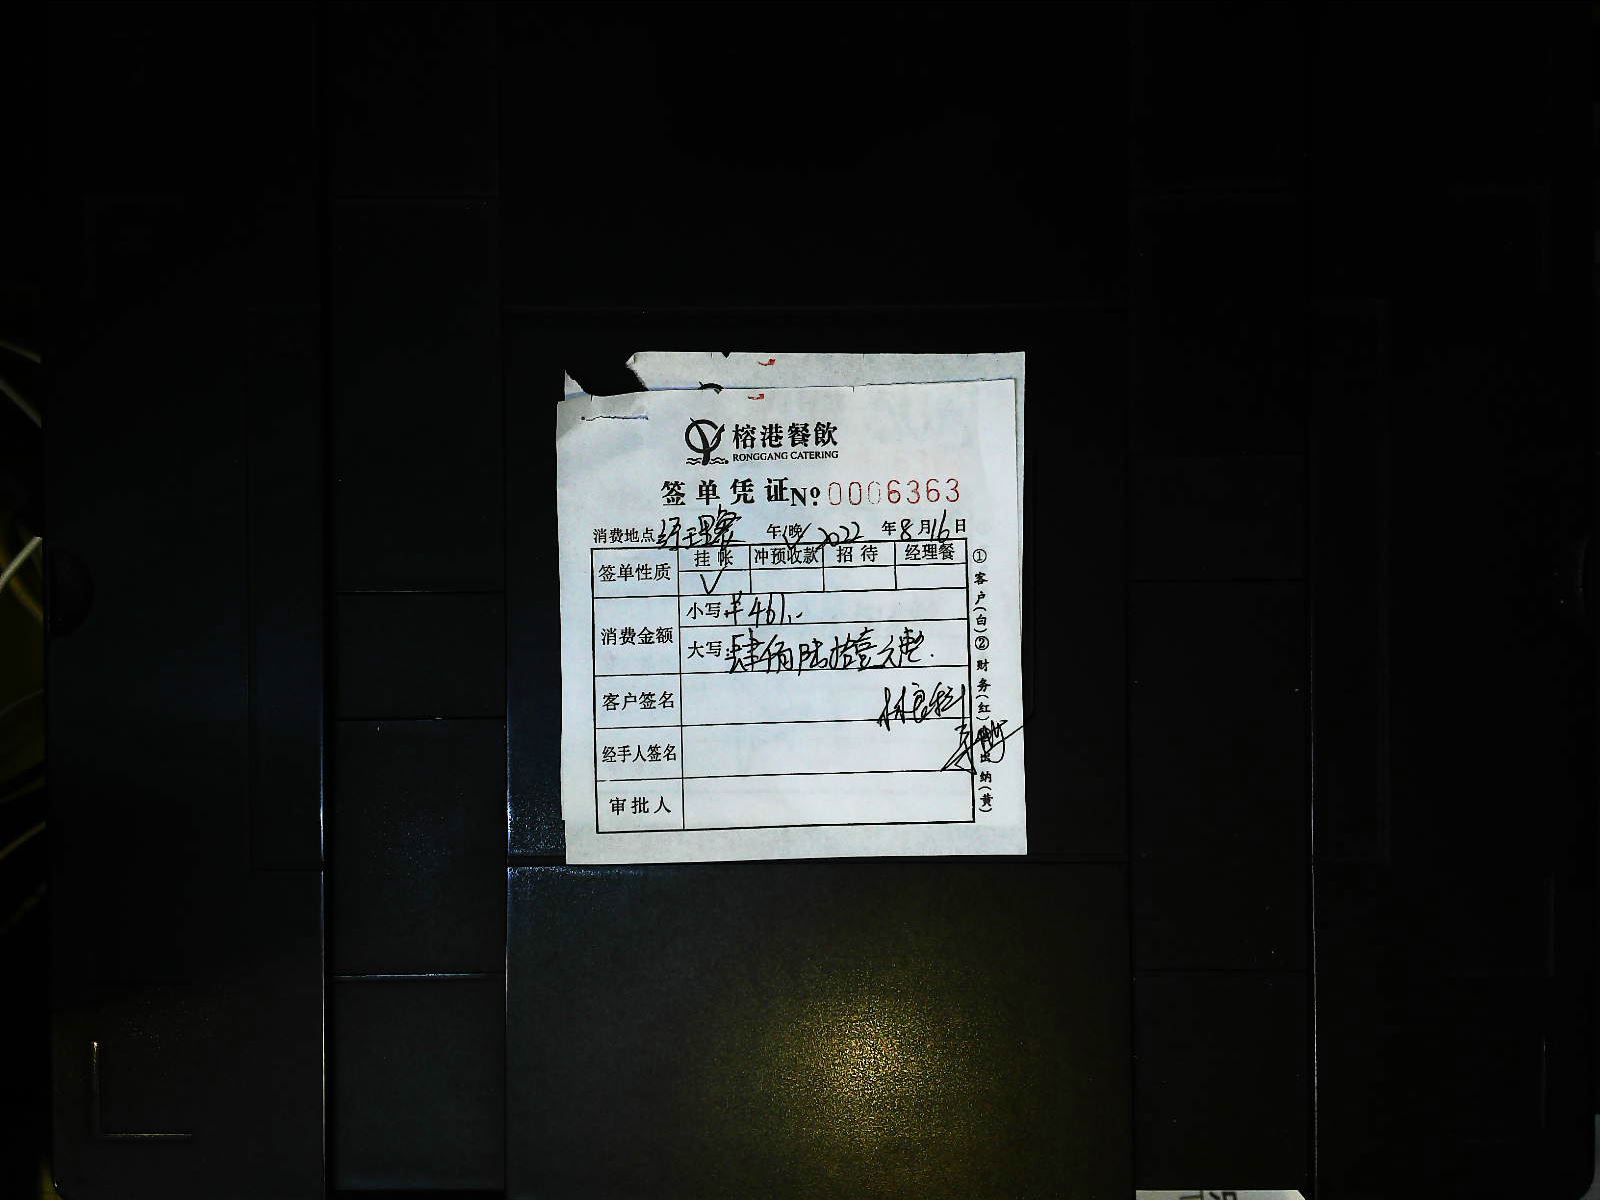 榕港餐飲
RONGGANG CATERING
签单凭证 No 0006363
消费地点 经理餐 午/晚 2022 年 8 月 16 日
签单性质 挂帐 冲预收款 招待 经理餐
√
消费金额 小写:¥461.-
大写:肆佰陆拾壹元整.
客户签名
经手人签名
审批人
①客户(白)②财务(红)
纳(黄)